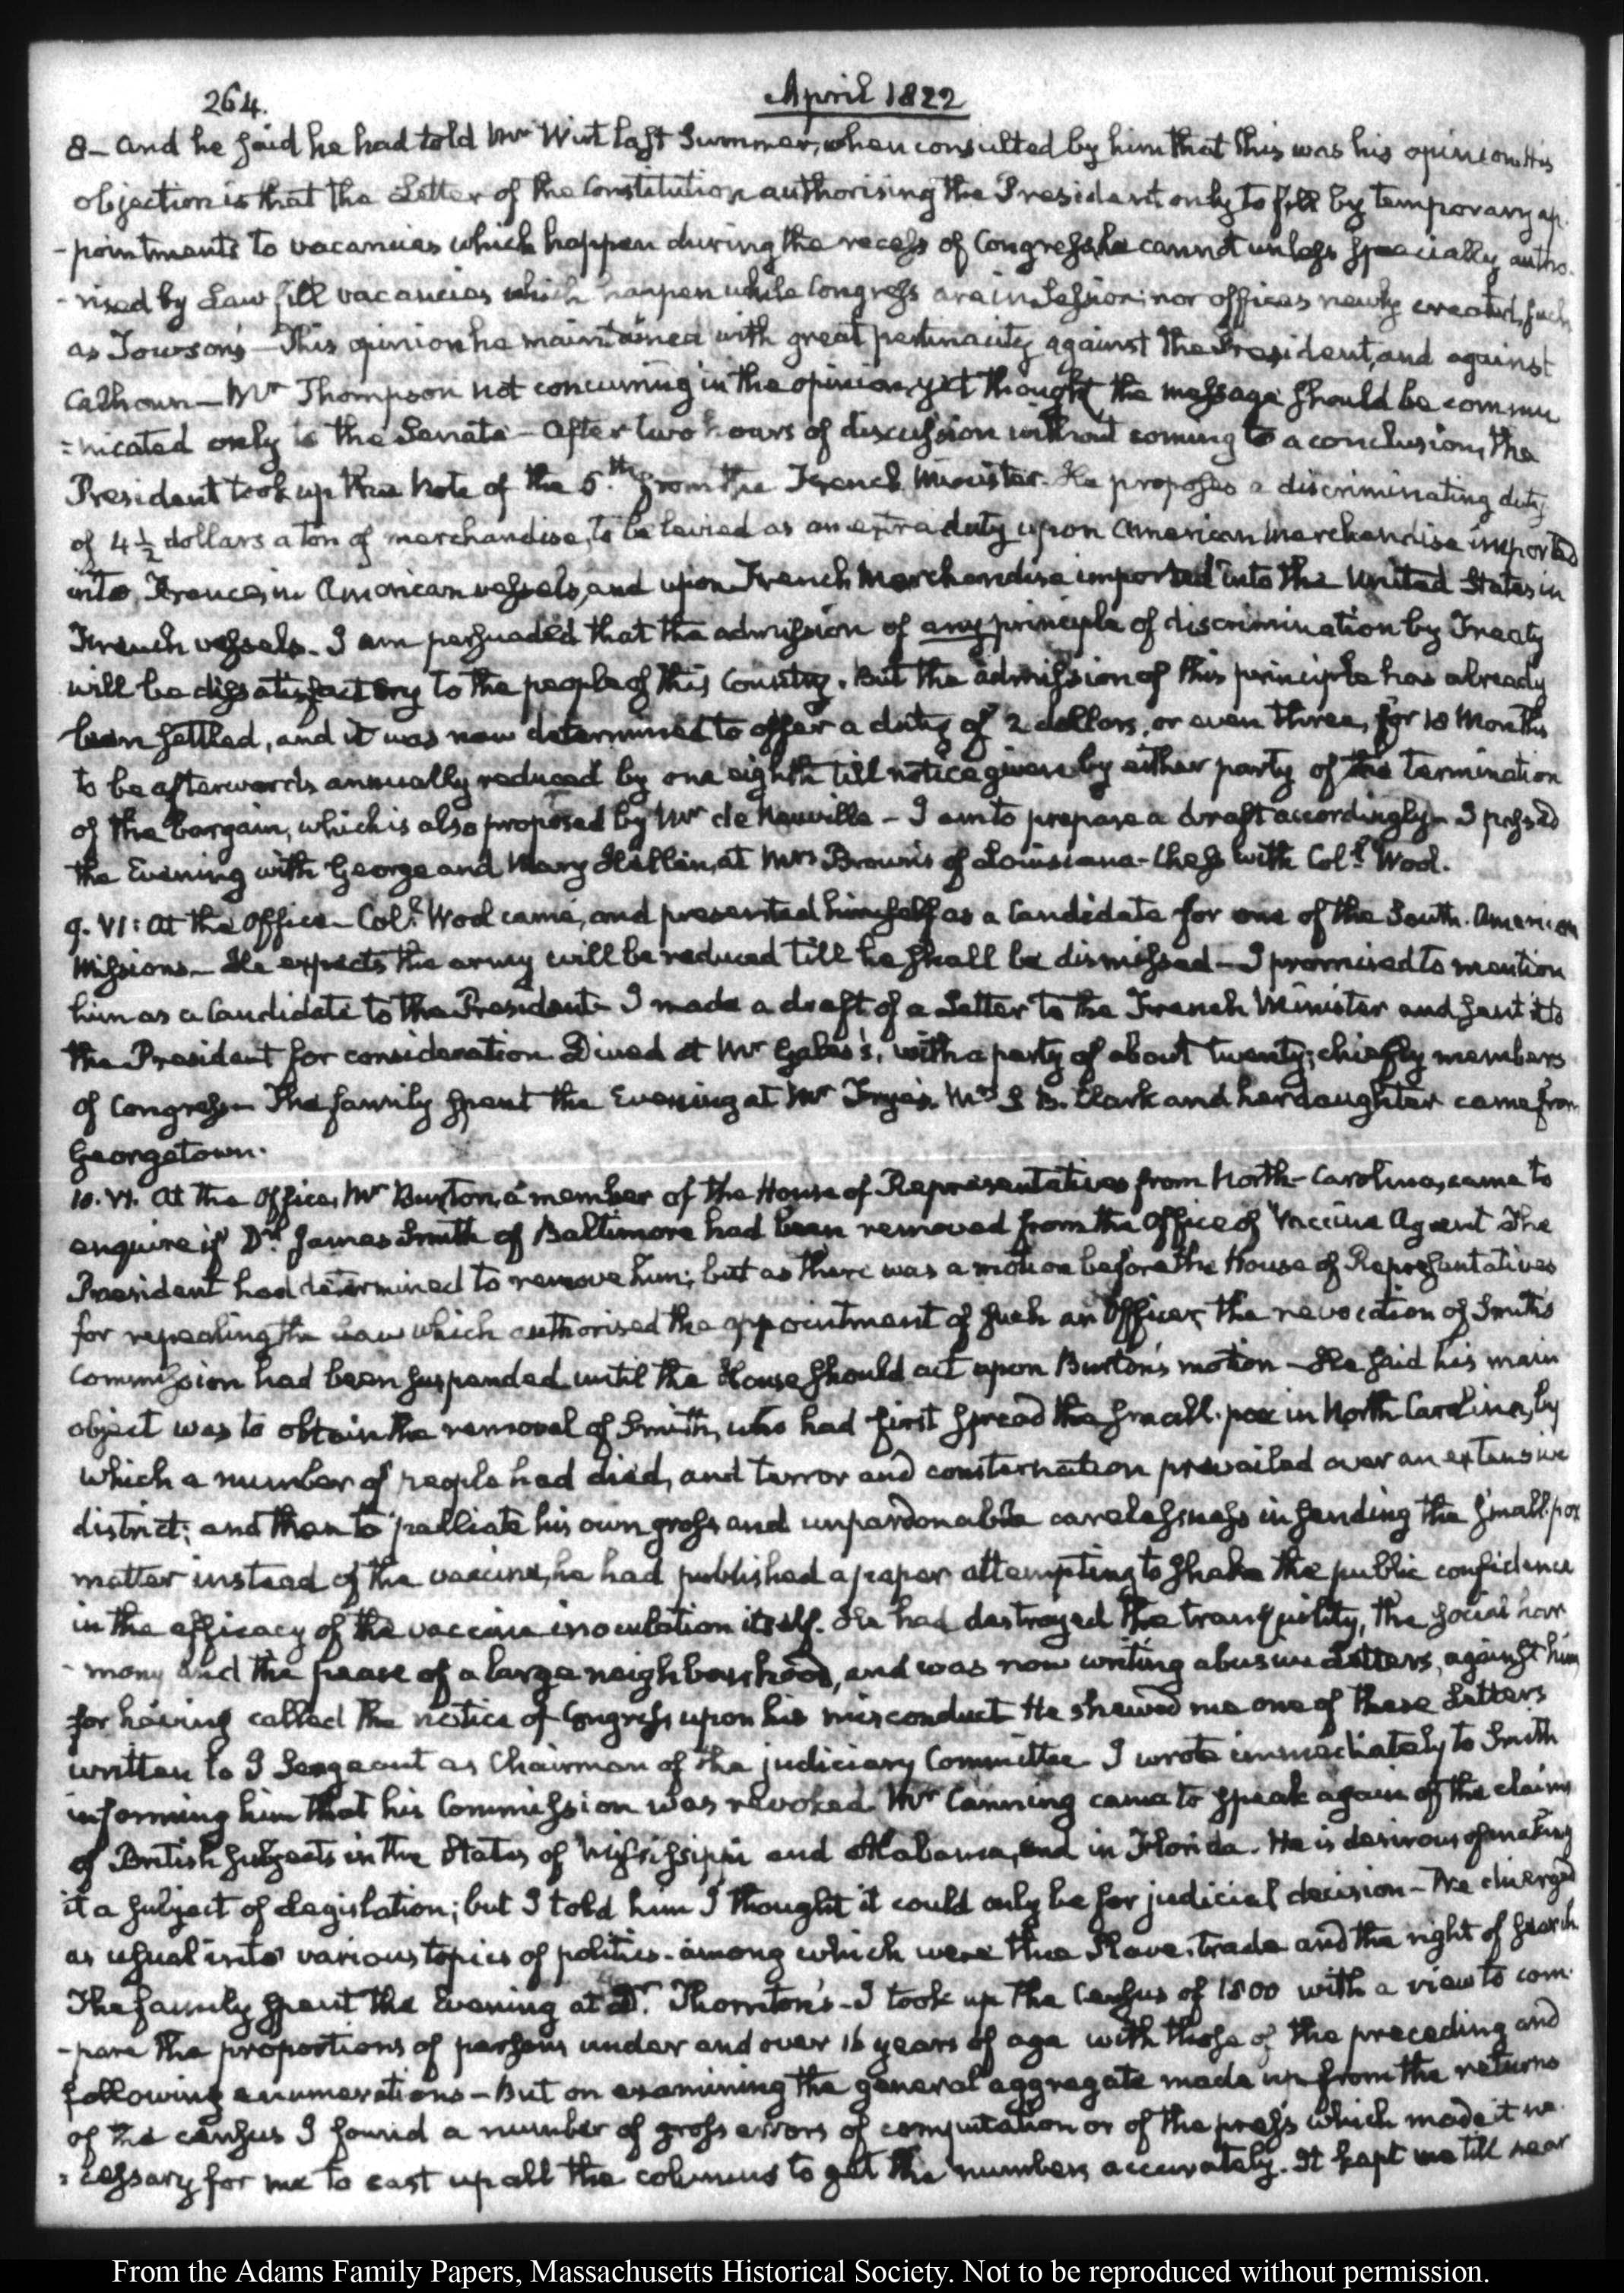 264.
April 1822
8– and he said he had told Mr Wirt last Summer, when consulted by him that this was his opinion. His
objection is that the Letter of the Constitution authorising the President only to fill by temporary ap-
-pointments to vacancies which happen during the recess of Congress, he cannot unless specially autho-
-rised by Law fill vacancies which happen while Congress are in Session: nor offices newly created, such
as Towson's – This opinion he maintained with great pertinacity against the President, and against
Calhoun – Mr Thompson not concurring in the opinion, yet thought the message should be commu
=nicated only to the Senate – After two hours of discussion without coming to a conclusion, the
President took up the Note of the 5th from the French Minister. He proposes a discriminating duty
of 4½ dollars a ton of merchandise, to be levied as an extra duty upon American Merchandise imported
into France, in American vessels, and upon French Merchandise imported into the United States in
French vessels. I am persuaded that the admission of any principle of discrimination by Treaty
will be dissatisfactory to the people of this Country. But the admission of this principle has already
been settled, and it was now determined to offer a duty of 2 dollars, or even three, for 18 Months
to be afterwards annually reduced by one eighth till notice given by either party of the termination
of the bargain, which is also proposed by Mr de Neuville – I am to prepare a draft accordingly – I passed
the Evening with George and Mary Hellen, at Mrs Brown's of Louisiana – Chess with Coll Wool.
9. VI: At the Office – Coll Wool came, and presented himself as a Candidate for one of the South. American
Missions – He expects the army will be reduced till he shall be dismissed – I promised to mention
him as a Candidate to the President – I made a draft of a Letter to the French Minister and sent it to
the President for consideration. Dined at Mr Gales's, with a party of about twenty; chiefly members
of Congress – The family spent the Evening at Mr Frye's. Mrs S B. Clark and her daughter came from
Georgetown.
10. VI. At the Office, Mr Burton, a member of the House of Representatives from North-Carolina, came to
enquire if Dr James Smith of Baltimore had been removed from the Office of Vaccine Agent The
President had determined to remove him; but as there was a motion before the House of Representatives
for repealing the Law which authorised the appointment of such an Officer, the revocation of Smith's
Commission had been suspended until the House should act upon Burton's motion – He said his main
object was to obtain the removal of Smith, who had first spread the small-pox in North Carolina, by
which a number of people had died, and terror and consternation prevailed over an extensive
district: and then to palliate his own gross and unpardonable carelessness in sending the small-pox
matter instead of the vaccine, he had published a paper attempting to shake the public confidence
in the efficacy of the vaccine inoculation itself. He had destroyed the tranquility, the social har
-mony and the peace of a large neighbourhood, and was now writing abusive Letters, against him
for having called the notice of Congress upon his misconduct He shewed me one of these Letters
written to J Sergeant as Chairman of the judiciary Committee I wrote immediately to Smith
informing him that his Commission was revoked Mr Canning came to speak again of the claims
of British Subjects in the States of Mississippi and Alabama, and in Florida. He is desirous of making
it a subject of legislation; but I told him I thought it could only be for judicial decision – We diverged
as usual into various topics of politics. among which were the Slave-trade and the right of search.
The family spent the Evening at Dr Thornton's – I took up the Census of 1800 with a view to com-
-pare the proportions of persons under and over 16 years of age with those of the preceding and
following enumerations – But on examining the general aggregate made up from the returns
of the census I found a number of gross errors of computation or of the press which made it ne-
=cessary for me to cast up all the columns to get the numbers accurately. It kept me till near
From the Adams Family Papers, Massachusetts Historical Society. Not to be reproduced without permission.